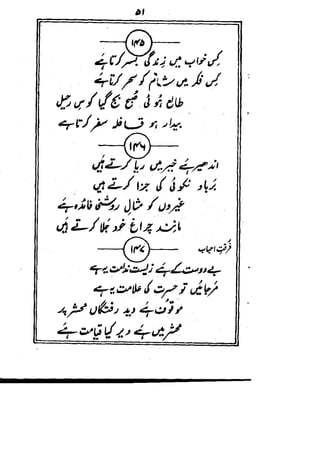 ۵۱
۱۴۵
کس خواب میں زندگی بسر کرتا ہے
کس فکر میں شام کو سحر کرتا ہے
طالع ہوئی صبح بج گیا کوس رحیل
بیدار ہو قافلہ سفر کرتا ہے
۱۴۶
اندھیر ہے خیر میں ریا کرتے ہیں
برباد نکوئی کی جزا کرتے ہیں
غیروں کو مثال روشنی فائدہ ہے
مانند چراغ خود جلا کرتے ہیں
۱۴۷
فرقتِ احباب
بے دوست کے ہے زیست ندامت یہ ہے
مرجائیں تو حسرت کی علامت یہ ہے
موقوف ہے دید رفتگاں محشر پر
محشر میں ہے دیر کیا قیامت ہے